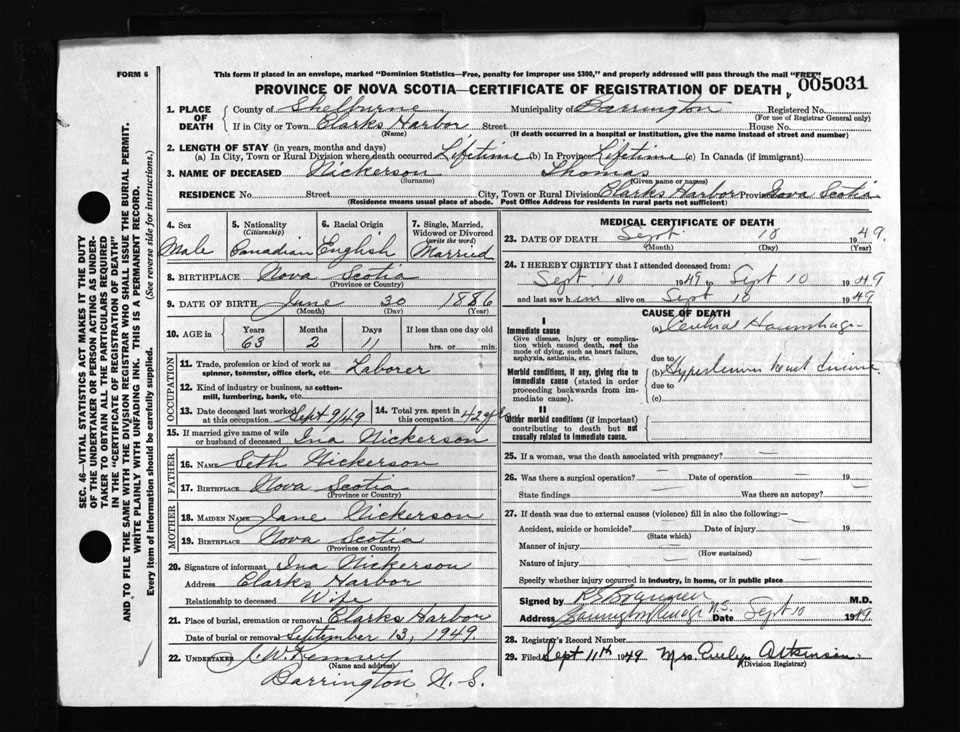 FORM 6
This form if placed in an envelope, marked "Dominion Statistics—Free, penalty for improper use $300," and properly addressed will pass through the mail "FREE"
PROVINCE OF NOVA SCOTIA—CERTIFICATE OF REGISTRATION OF DEATH
005031
1. PLACE OF DEATH
County of Shelburne Municipality of Barrington Registered No.
(For use of Registrar General only)
If in City or Town Clarks Harbor Street House No.
(Name) (If death occurred in a hospital or institution, give the name instead of street and number)
2. LENGTH OF STAY (in years, months and days)
(a) In City, Town or Rural Division where death occurred Lifetime (b) In Province Lifetime (c) In Canada (if immigrant)
3. NAME OF DECEASED Nickerson Thomas
(Surname) (Given name or names)
RESIDENCE No. Street City, Town or Rural Division Clarks Harbor Province Nova Scotia
(Residence means usual place of abode. Post Office Address for residents in rural parts not sufficient)
4. Sex
Male
5. Nationality
(Citizenship)
Canadian
6. Racial Origin
English
7. Single, Married, Widowed or Divorced
(write the word)
Married
8. BIRTHPLACE Nova Scotia
(Province or Country)
9. DATE OF BIRTH June 30 1886
(Month) (Day) (Year)
10. AGE in
Years Months Days If less than one day old
63 2 11 hrs. or min.
OCCUPATION
11. Trade, profession or kind of work as spinner, teamster, office clerk, etc. Laborer
12. Kind of industry or business, as cotton-mill, lumbering, bank, etc.
13. Date deceased last worked at this occupation Sept 9/49
14. Total yrs. spent in this occupation 42 yrs
15. If married give name of wife or husband of deceased Ina Nickerson
FATHER
16. Name Seth Nickerson
17. Birthplace Nova Scotia
(Province or Country)
MOTHER
18. Maiden Name Jane Nickerson
19. Birthplace Nova Scotia
(Province or Country)
20. Signature of informant Ina Nickerson
Address Clarks Harbor
Relationship to deceased Wife
21. Place of burial, cremation or removal Clarks Harbor
Date of burial or removal September 13, 1949.
22. UNDERTAKER W. Kenney
(Name and address)
Barrington N. S.
MEDICAL CERTIFICATE OF DEATH
23. DATE OF DEATH Sept 10 1949.
(Month) (Day) (Year)
24. I HEREBY CERTIFY that I attended deceased from:
Sept 10 1949 to Sept 10 1949
and last saw him alive on Sept 10 1949
CAUSE OF DEATH
I
Immediate cause
Give disease, injury or complication which caused death, not the mode of dying, such as heart failure, asphyxia, asthenia, etc.
(a) Cerebral Haemorrhage
due to
Morbid conditions, if any, giving rise to immediate cause (stated in order proceeding backwards from immediate cause).
(b) Hypertensive heart disease
due to
(c)
II
Other morbid conditions (if important) contributing to death but not causally related to immediate cause.
25. If a woman, was the death associated with pregnancy?
26. Was there a surgical operation? Date of operation 19
State findings Was there an autopsy?
27. If death was due to external causes (violence) fill in also the following:—
Accident, suicide or homicide? Date of injury 19
(State which)
Manner of injury
(How sustained)
Nature of injury
Specify whether injury occurred in industry, in home, or in public place
Signed by M.D.
Address Barrington Passage N.S. Date Sept 10 1949
28. Registrar's Record Number
29. Filed Sept 11th 1949 Mrs. Evelyn Atkinson
(Division Registrar)
SEC. 46—VITAL STATISTICS ACT MAKES IT THE DUTY
OF THE UNDERTAKER OR PERSON ACTING AS UNDER-
TAKER TO OBTAIN ALL THE PARTICULARS REQUIRED
IN THE "CERTIFICATE OF REGISTRATION OF DEATH"
AND TO FILE THE SAME WITH THE DIVISION REGISTRAR WHO SHALL ISSUE THE BURIAL PERMIT.
WRITE PLAINLY WITH UNFADING INK. THIS IS A PERMANENT RECORD.
Every item of information should be carefully supplied. (See reverse side for instructions.)